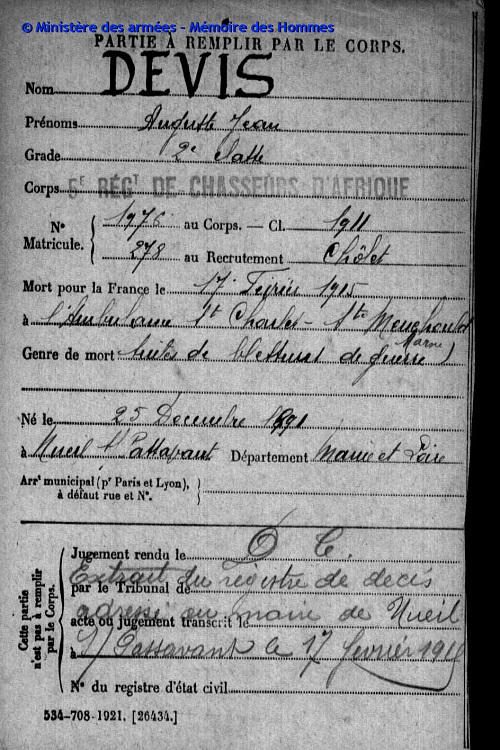 © Ministère des armées - Mémoire des Hommes
PARTIE À REMPLIR PAR LE CORPS.
Nom DEVIS
Prénoms Auguste Jean
Grade 2e Classe
Corps 5e RÉGT DE CHASSEURS D'AFRIQUE
N° Matricule. { 1976 au Corps. — Cl. 1911
278 au Recrutement Chôlet
Mort pour la France le 17 Février 1915
à l'Ambulance St Charles - Ste Menehould
(Marne)
Genre de mort suites de blessures de guerre
Né le 25 Décembre 1891
à Nueil s/ Passavant Département Maine et Loire
Arrt municipal (pr Paris et Lyon), }
à défaut rue et N°.
Cette partie n'est pas à remplir par le Corps.
Jugement rendu le
par le Tribunal de
acte ou jugement transcrit le
à
Extrait du registre de décès
adressé au maire de Nueil
s/ Passavant le 17 février 1915
N° du registre d'état civil
534-708-1921. [26434.]